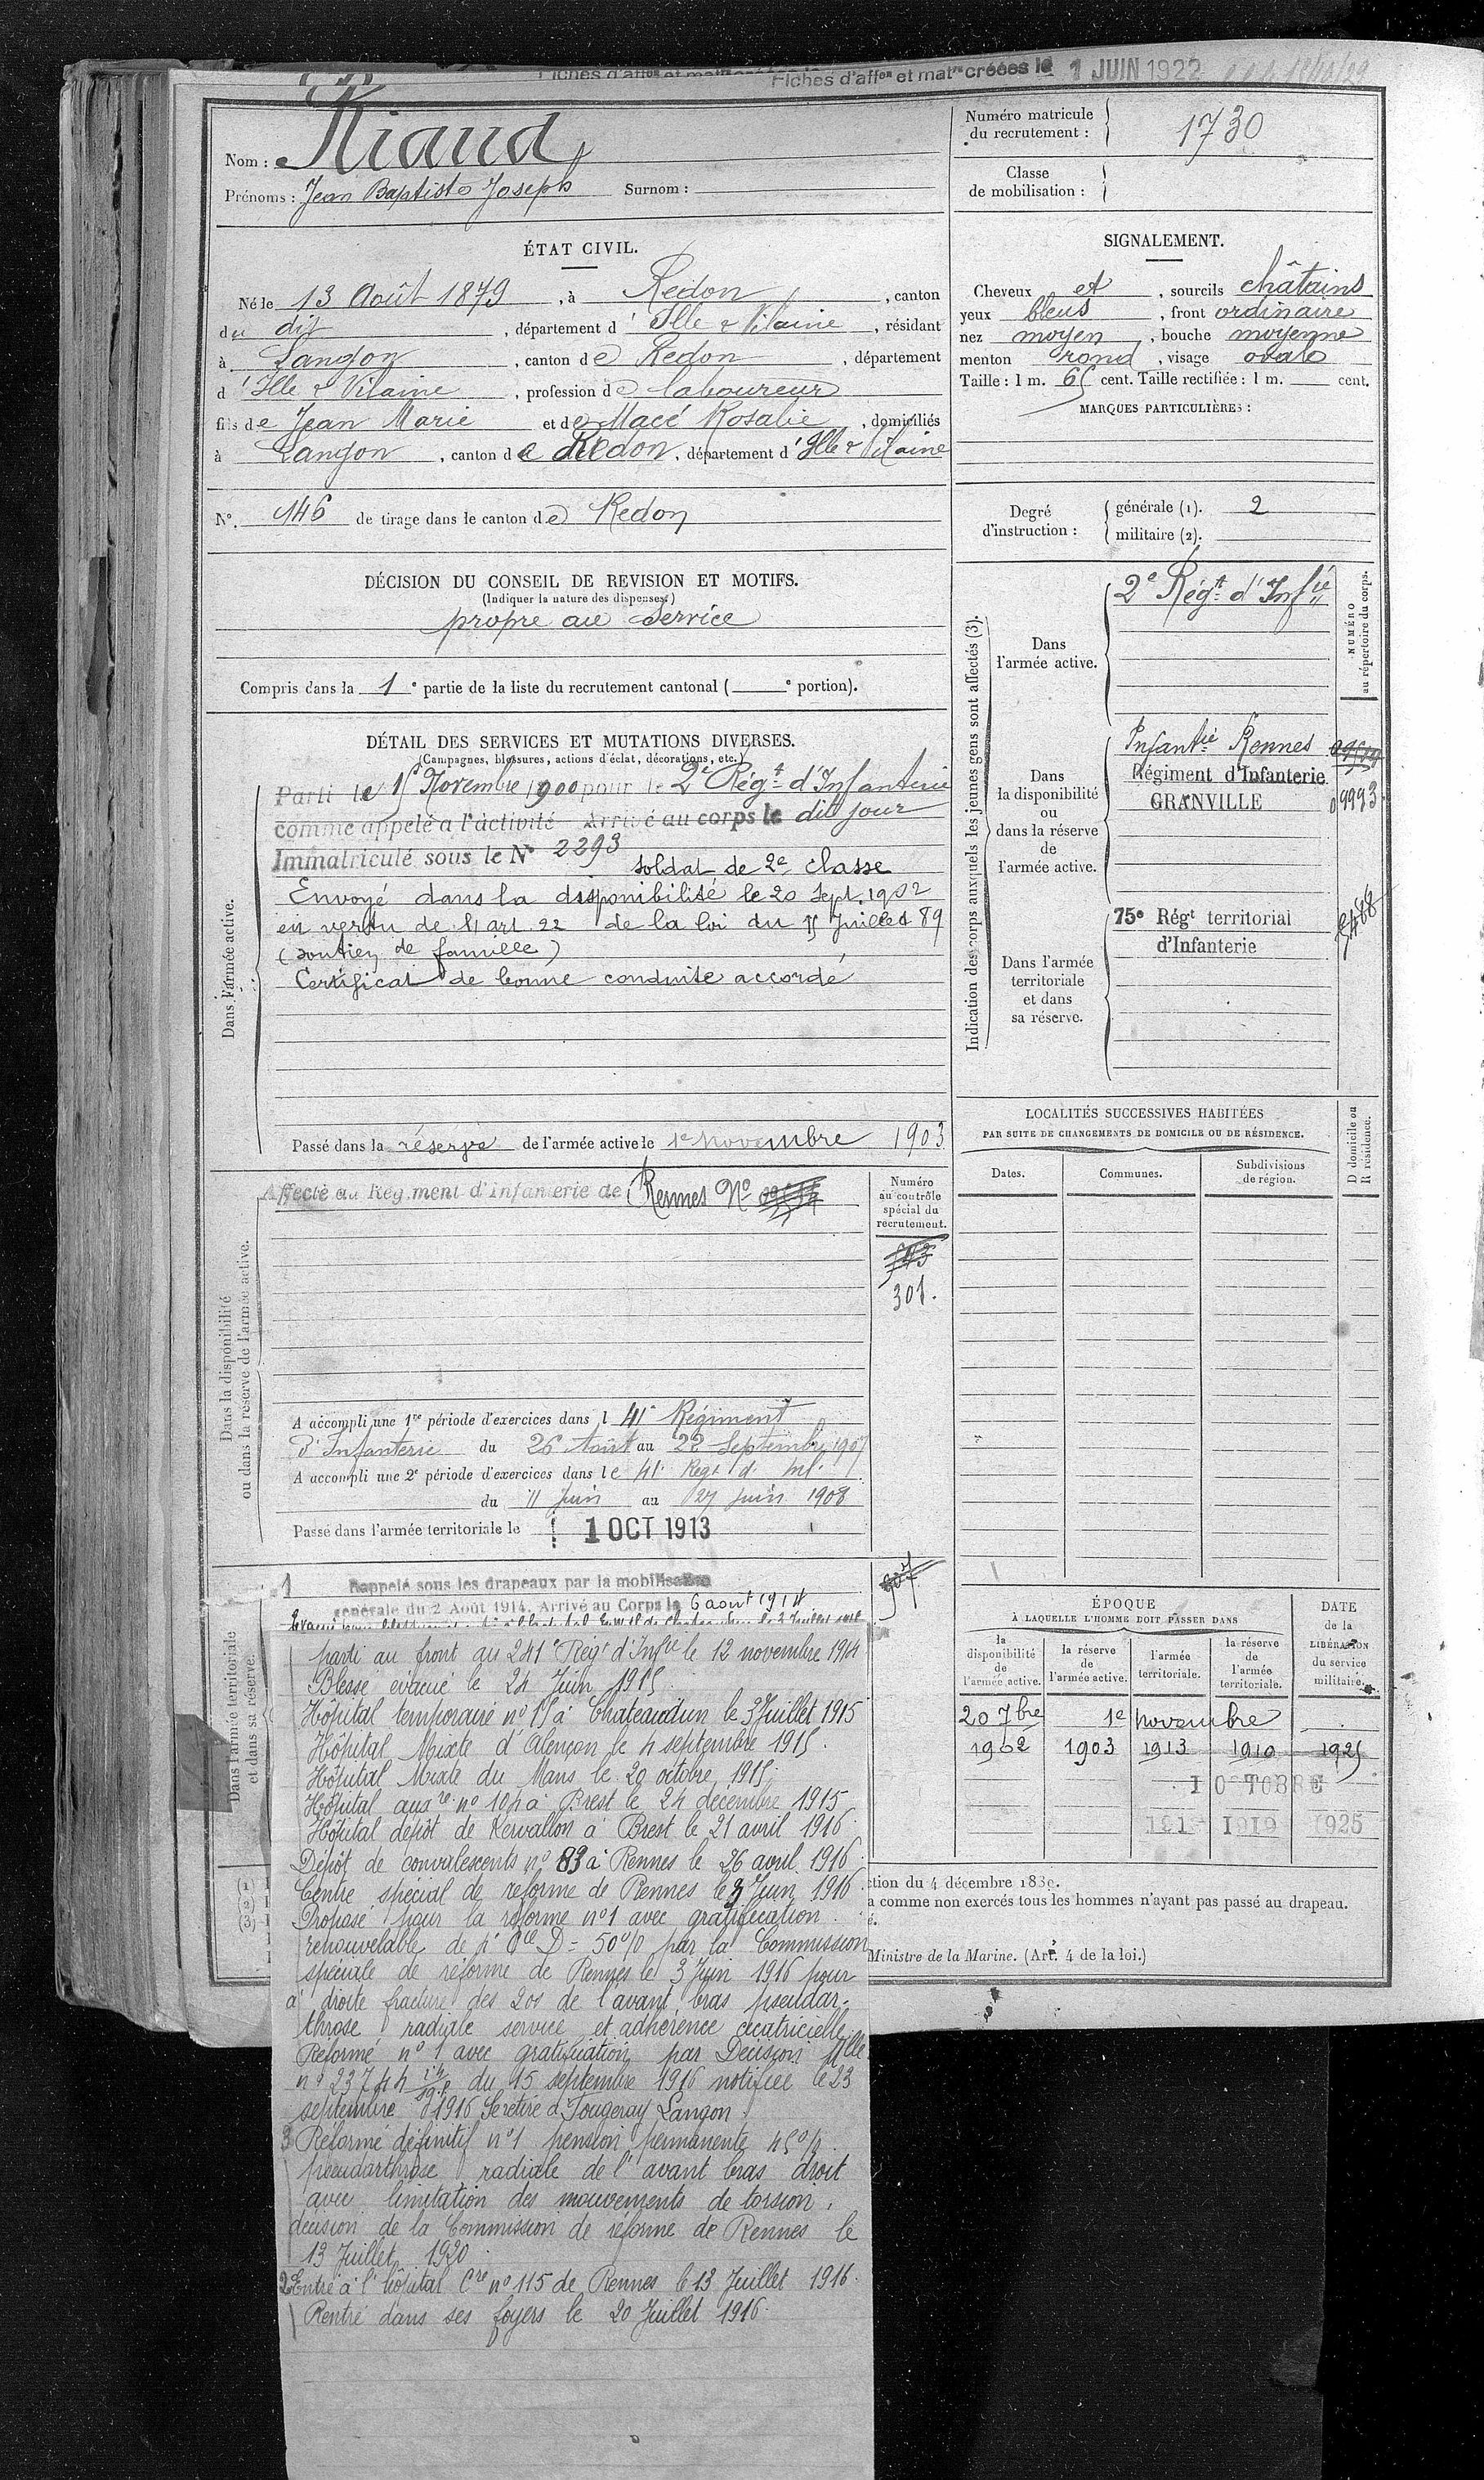 Fiches d'affon et matre créées le 1 JUIN 1922
Nom : Riaud
Prénoms : Jean Baptiste Joseph Surnom :
Numéro matricule
du recrutement : 1730
Classe
de mobilisation :
ÉTAT CIVIL.
Né le 13 Août 1879, à Redon, canton
du dit, département d'Ille & Vilaine, résidant
à Langon, canton de Redon, département
d'Ille & Vilaine, profession de laboureur
fils de Jean Marie et de Macé Rosalie, domiciliés
à Langon, canton de Redon, département d'Ille & Vilaine
No. 146 de tirage dans le canton de Redon
SIGNALEMENT.
Cheveux et, sourcils châtains
yeux bleus, front ordinaire
nez moyen, bouche moyenne
menton rond, visage ovale
Taille : 1 m. 65 cent. Taille rectifiée : 1 m. cent.
MARQUES PARTICULIÈRES :
Degré
d'instruction :
générale (1). 2
militaire (2).
DÉCISION DU CONSEIL DE REVISION ET MOTIFS.
(Indiquer la nature des dispenses.)
propre au service
Compris dans la 1e partie de la liste du recrutement cantonal (e portion).
DÉTAIL DES SERVICES ET MUTATIONS DIVERSES.
(Campagnes, blessures, actions d'éclat, décorations, etc.)
Dans l'armée active.
Parti le 15 Novembre 1900 pour le 2e Régt d'Infanterie
comme appelé a l'activité Arrivé au corps le dit jour
Immatriculé sous le No 2293 soldat de 2e classe
Envoyé dans la disponibilité le 20 Sept. 1902
en vertu de l'art. 22 de la loi du 15 Juillet 89
(soutien de famille)
Certificat de bonne conduite accordé
Passé dans la réserve de l'armée active le 1e novembre 1903
Indication des corps auxquels les jeunes gens sont affectés (3).
NUMÉRO
au répertoire du corps.
Dans
l'armée active.
2e Régt d'Infie
Dans
la disponibilité
ou
dans la réserve
de
l'armée active.
Infantie Rennes
Régiment d'Infanterie
GRANVILLE 09993
Dans l'armée
territoriale
et dans
sa réserve.
75e Régt territorial
d'Infanterie
Dans la disponibilité
ou dans la réserve de l'armée active.
Affecté au Régiment d'infanterie de Rennes No
Numéro
au contrôle
spécial du
recrutement.
301.
A accompli une 1re période d'exercices dans l 41e Régiment
d'Infanterie du 26 Août au 22 Septembre 1907
A accompli une 2e période d'exercices dans le 41e Regt d. Inf.
du 11 Juin au 27 Juin 1908
Passé dans l'armée territoriale le 1 OCT 1913
LOCALITÉS SUCCESSIVES HABITÉES
PAR SUITE DE CHANGEMENTS DE DOMICILE OU DE RÉSIDENCE.
Dates. Communes. Subdivisions
de région.
D domicile ou
R résidence.
Dans l'armée territoriale
et dans sa réserve.
1 Rappelé sous les drapeaux par la mobilisation
générale du 2 Août 1914. Arrivé au Corps le 6 aout 1914
parti au front au 241e Régt d'Infie le 12 novembre 1914
Blessé évacué le 24 Juin 1915
Hôpital temporaire no 15 à Chateaudun le 3 Juillet 1915
Hôpital Mixte d'Alençon le 4 septembre 1915.
Hôpital Mixte du Mans le 20 octobre 1915.
Hôpital auxre no 104 à Brest le 24 décembre 1915
Hôpital dépôt de Kervallon à Brest le 21 avril 1916.
Dépôt de convalescents no 83 à Rennes le 26 avril 1916.
Centre spécial de réforme de Rennes le 3 Juin 1916.
Proposé pour la réforme no 1 avec gratification
renouvelable de 4e Cie D = 50% par la Commission
spéciale de réforme de Rennes le 3 Juin 1916 pour
à droite fracture des 2 os de l'avant bras pseudar-
throse radiale service et adhérence cicatricielle.
Réformé no 1 avec gratification par Décision Mlle
no 23744 du 15 septembre 1916 notifiée le 23
septembre 1916 Se retire à Fougeray Langon.
3 Réformé définitif no 1 pension permanente 45%.
pseudarthrose radiale de l'avant bras droit
avec limitation des mouvements de torsion.
décision de la Commission de réforme de Rennes le
13 Juillet 1920.
2 Entré à l'hôpital Cre no 115 de Rennes le 13 Juillet 1916.
Rentré dans ses foyers le 20 Juillet 1916.
ÉPOQUE
À LAQUELLE L'HOMME DOIT PASSER DANS
la
disponibilité
de
l'armée active.
la réserve
de
l'armée active.
l'armée
territoriale.
la réserve
de
l'armée
territoriale.
DATE
de la
LIBÉRATION
du service
militaire.
20 7bre 1e novembre
1902 1903 1913 1919 1925
1 OCTOBRE
1913 1919 1925
(1)
(2)
(3)
ction du 4 décembre 1889.
a comme non exercés tous les hommes n'ayant pas passé au drapeau.
é.
Ministre de la Marine. (Art. 4 de la loi.)